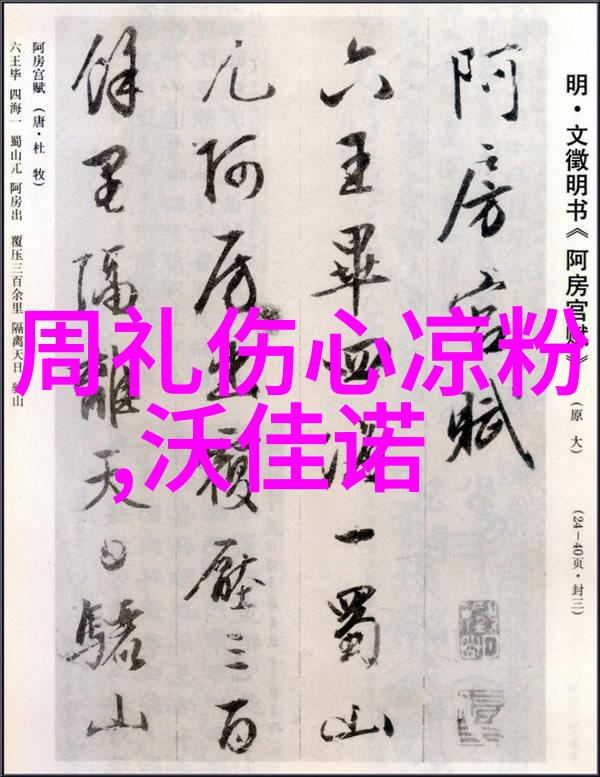 明·文徵明书《阿房宫赋》(原大) (24－40页·封三)
阿房宫賦
六王畢四海一蜀山
兀阿房出覆壓三百
餘里隔離天日驪山
阿房宫赋（唐·杜 牧）
六王毕 四海一 蜀山兀 阿房出 覆压三百余里 隔离天日 骊山
周礼伤心凉粉
,沃佳诺